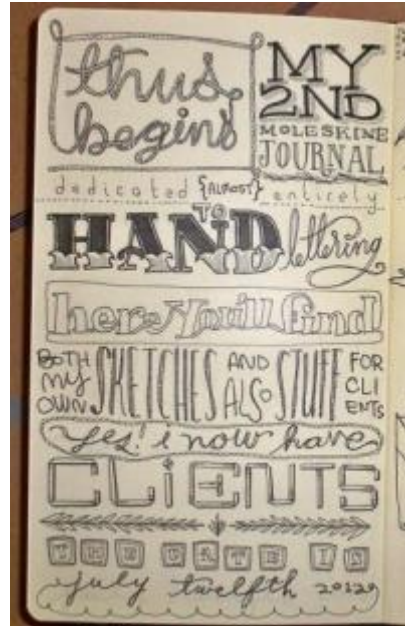 thus begins
MY 2ND
MOLESKINE
JOURNAL
dedicated {ALMOST} entirely
TO
HAND lettering
here you'll find
BOTH MY OWN SKETCHES AND ALSO STUFF FOR CLIENTS
yes! i now have
CLiENTS
THE DATE IS
july twelfth 2012